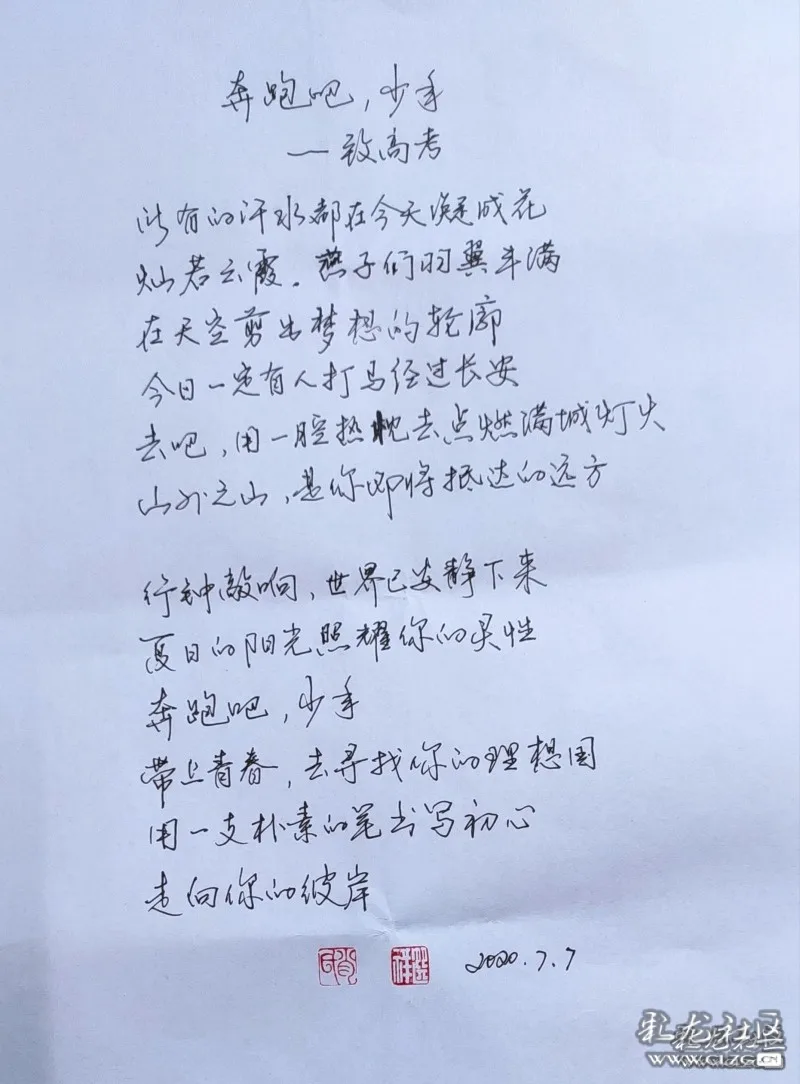 奔跑吧，少年
—致高考
所有的汗水都在今天凝成花
灿若云霞。燕子们羽翼丰满
在天空剪出梦想的轮廓
今日一定有人打马经过长安
去吧，用一腔热忱去点燃满城灯火
山外之山，是你即将抵达的远方
行钟敲响，世界已安静下来
夏日的阳光照耀你的灵性
奔跑吧，少年
带上青春，去寻找你的理想国
用一支朴素的笔书写初心
走向你的彼岸
2020.7.7
彩龙社区
WWW.CLZG.CN